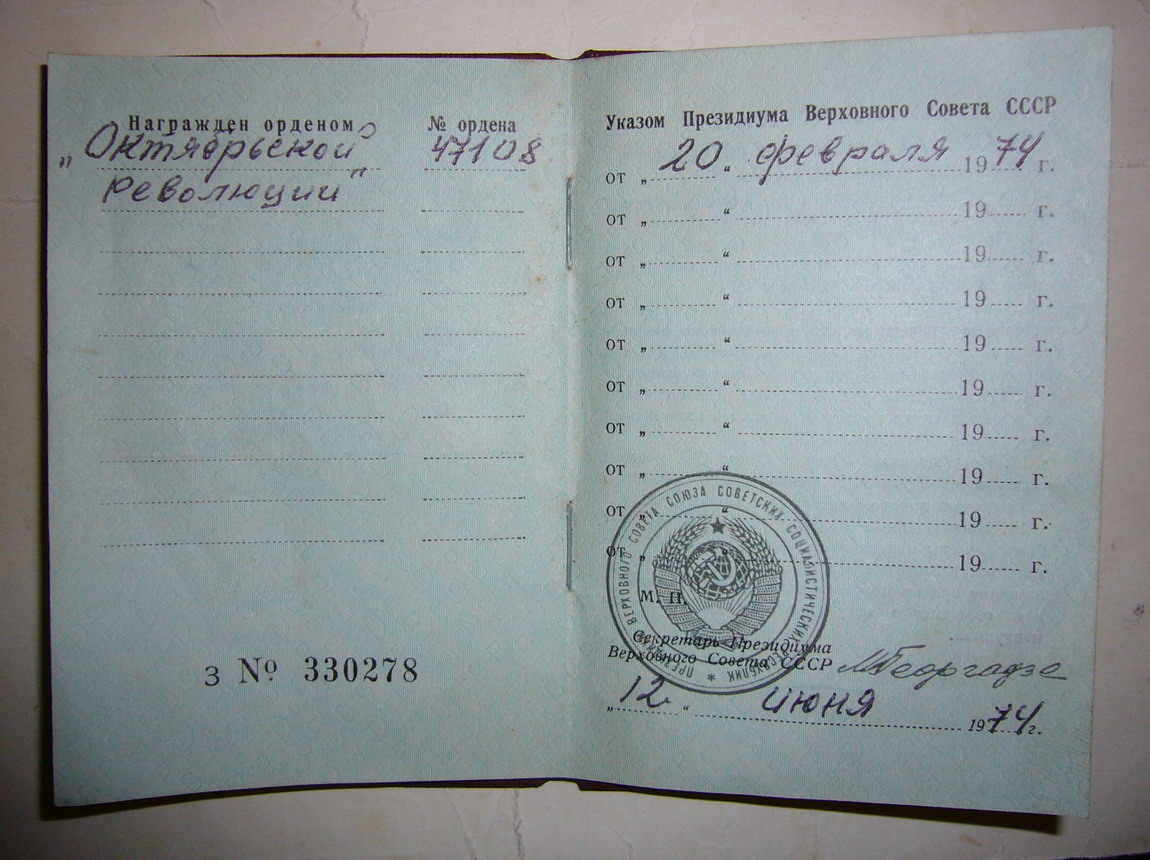 Награжден орденом
№ ордена
„Октябрьской
47108
Революции"
З № 330278
Указом Президиума Верховного Совета СССР
от „ 20 “ февраля 1974 г.
от „ “ 19 г.
от „ “ 19 г.
от „ “ 19 г.
от „ “ 19 г.
от „ “ 19 г.
от „ “ 19 г.
от „ “ 19 г.
от „ “ 19 г.
от „ “ 19 г.
М. П.
ПРЕЗИДИУМ ВЕРХОВНОГО СОВЕТА СОЮЗА СОВЕТСКИХ СОЦИАЛИСТИЧЕСКИХ РЕСПУБЛИК *
Секретарь Президиума
Верховного Совета СССР М.Георгадзе
„ 12 “ июня 1974 г.